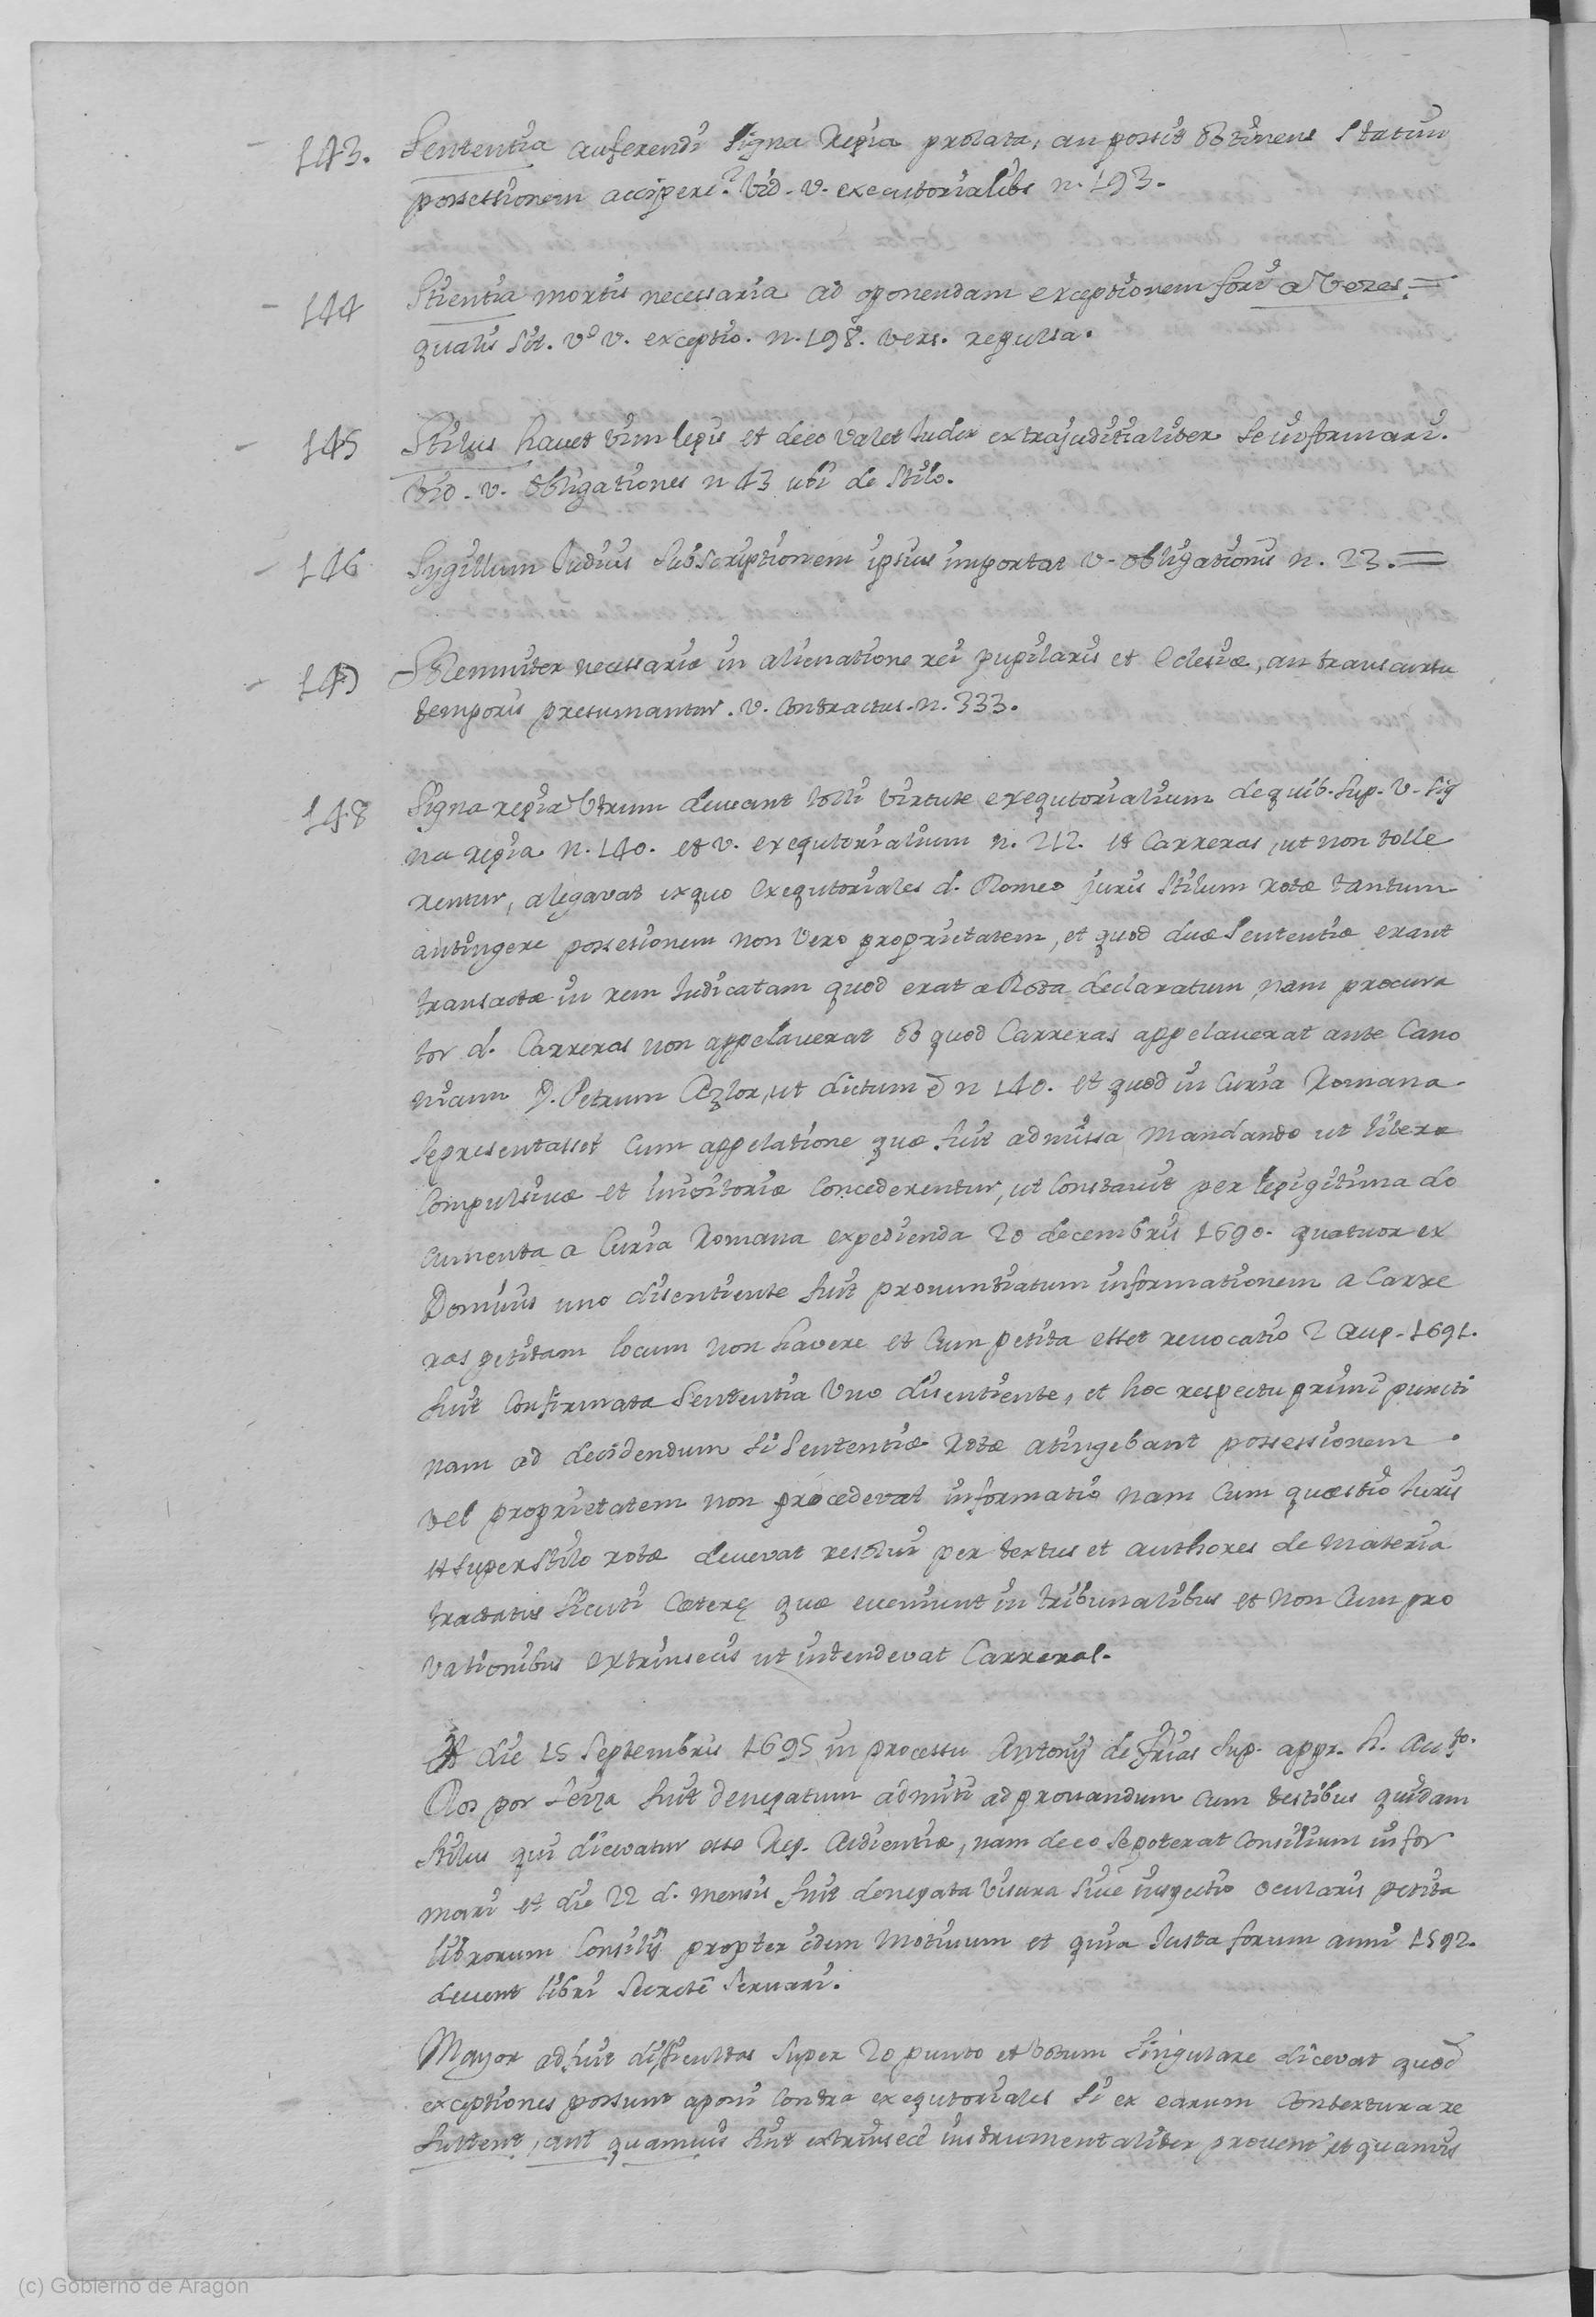 143. Sententia auferendi signa Regia prolata, an possit obtinens statim
possessionem accipere? Vid. v. executorialibs n. 193.
144 Stientia mortis necessaria ad oponendam exceptionem fori a Veres. =
qualis sit. Vd v. exceptio. n. 198. vers. regulla.
145 Stilus havet vim legis et deeo valet Iudex extrajuditialiter se informari.
Vid. v. obligationes n 43 ubi de stilo.
146 Sygillum Iudicis subscriptionem ipsius importat v. obligationis n. 23. =
147 Solemniter necessariæ in alienatione rei pupilaris et Eclesiæ, an transcursu
temporis presumantur. v. Contractus. n. 333.
148 Signa regia Utrum deveant tolli virtute exequtorialium de quib. sup. v. sig
na regia n. 140. et v. exequtorialium n. 212. et Carreras, ut non tolle
rentur, alegavat ex quo exequtoriales d. Romeo juxis stilum rotæ tantum
antingere possesionem non vero proprietatem, et quod duæ sententiæ erant
transactæ in rem Iudicatam quod erat a Rota declaratum nam procura
tor d. Carreras non appelaverat ob quod Carreras appelaverat ante Cano
nicum D. Petrum Azlor, ut dictum ē n 140. et quod in Curia Romana
sepresentasset cum appelatione quæ fuit admissa mandando ut literæ
Compulsivæ et Inivitoriæ concederentur, ut constavit per legigitima do
cumenta a Curia Romana expedienda 20 decembris 1690. quatuor ex
Dominis uno disentiente fuit pronuntiatum informationem a Carre
ras petitam locum non havere et cum petita esset revocatio 2 aug. 1691.
fuit confirmata sententia Uno disentiente, et hoc respectu primi puncti
nam ad decidendum si sententiæ Rotæ atingebant possessionem
vel proprietatem non procedevat informatio nam cum quæstio Iuris
et super stilo rotæ devevat resolui per textus et authores de materia
tractatis sicuti cæterę quæ eveniunt in tribunalibus et non cum pro
vationibus extrinsecis ut intendevat Carreras.
Et die 15 septembris 1695 in processu Antonij de Frias sup. appr. h. Auto.
Ros por seiza fuit denegatum admiti ad provandum cum testibus quidam
stilus qui dicevatur esse Reg. Audientiæ, nam de eo se poterat Consilium infor
mari et die 22 d. mensis fuit denegata Visura sive inspectio ocularis petita
librorum Consilij propter idem motivum et quia Iusta forum anni 1592.
devent libri secretē servari.
Mayor adfuit dificultas super 20 punto et votum singulare dicevat quod
exceptiones possunt aponi contra exequtoriales si ex earum contextura re
sultent, aut quamvis sint extrinsecē instrumentaliter provent et quamvis